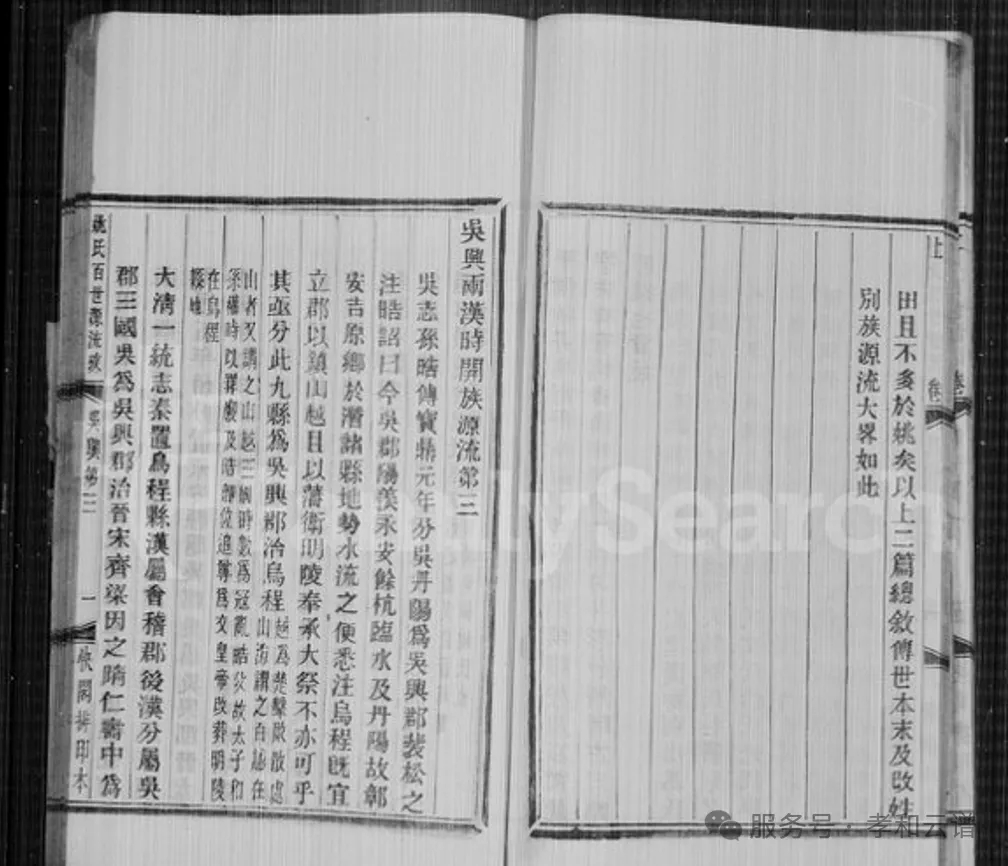 田且不多於姚矣以上二篇總敘傳世本末及改姓
別族源流大畧如此
吳興兩漢時開族源流第三
吳志孫晧傳寶鼎元年分吳丹陽爲吳興郡裴松之
注晧詔曰今吳郡陽羨永安餘杭臨水及丹陽故鄣
安吉原鄉於潛諸縣地勢水流之便悉注烏程旣宜
立郡以鎮山越且以藩衛明陵奉承大祭不亦可乎
其亟分此九縣爲吳興郡治烏程越爲楚擊散散處山海謂之百越在
山者又謂之山越三國時數爲寇亂晧父故太子和
孫權時以罪廢及晧卽位追尊爲文皇帝改葬明陵
在烏程縣地
大清一統志秦置烏程縣漢屬會稽郡後漢分屬吳
郡三國吳爲吳興郡治晉宋齊梁因之隋仁壽中爲
姚氏百世源流考
吳興第三
一
排印本
MySearch
服务号·孝和云谱